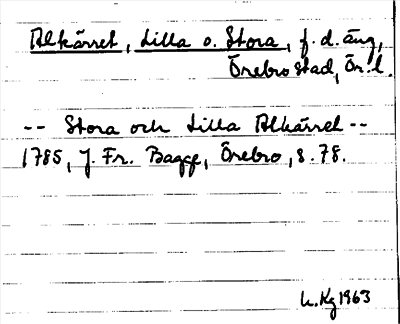 Alkärret, Lilla o. Stora, f.d. äng,
Örebro stad, Ör. l.
-- Stora och Lilla Alkärret --
1785, J. Fr. Bagge, Örebro, s. 78.
L. Kg 1963